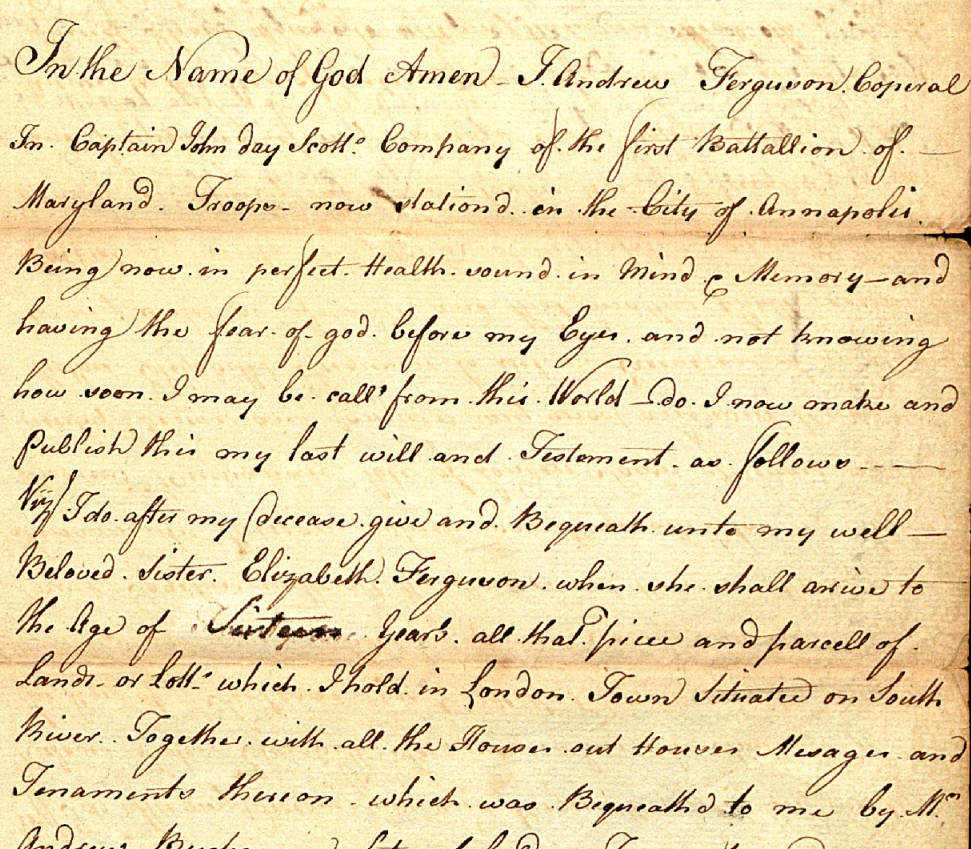 In the Name of God Amen - I. Andrew Ferguson. Coperal
In. Captain John day Scotts. Company of. the first Battallion of. —
Maryland. Troops - now stationd. in the City of Annapolis.
Being now. in perfect. Health. sound. in Mind & Memory — and
having the fear. of. god. before my Eyes. and not knowing
how soon. I may be. calld from. this. World — do. I now make and
Publish this my last will and Testement. as. follows - - —
Viz I do. after my decease. give and. Bequeath. unto my well —
Beloved. Sister. Elizabeth. Ferguson. when. she. shall arive to
the Age of Sixteen Years. all. that. piece and parcell of.
Lands. or Lotts. which. I hold. in London. Town Situated on South
River. Together. with. all. the Houses. out Houses Mesages. and
Tenaments thereon - which. was. Bequeathd to me by. Mr.
Andrew